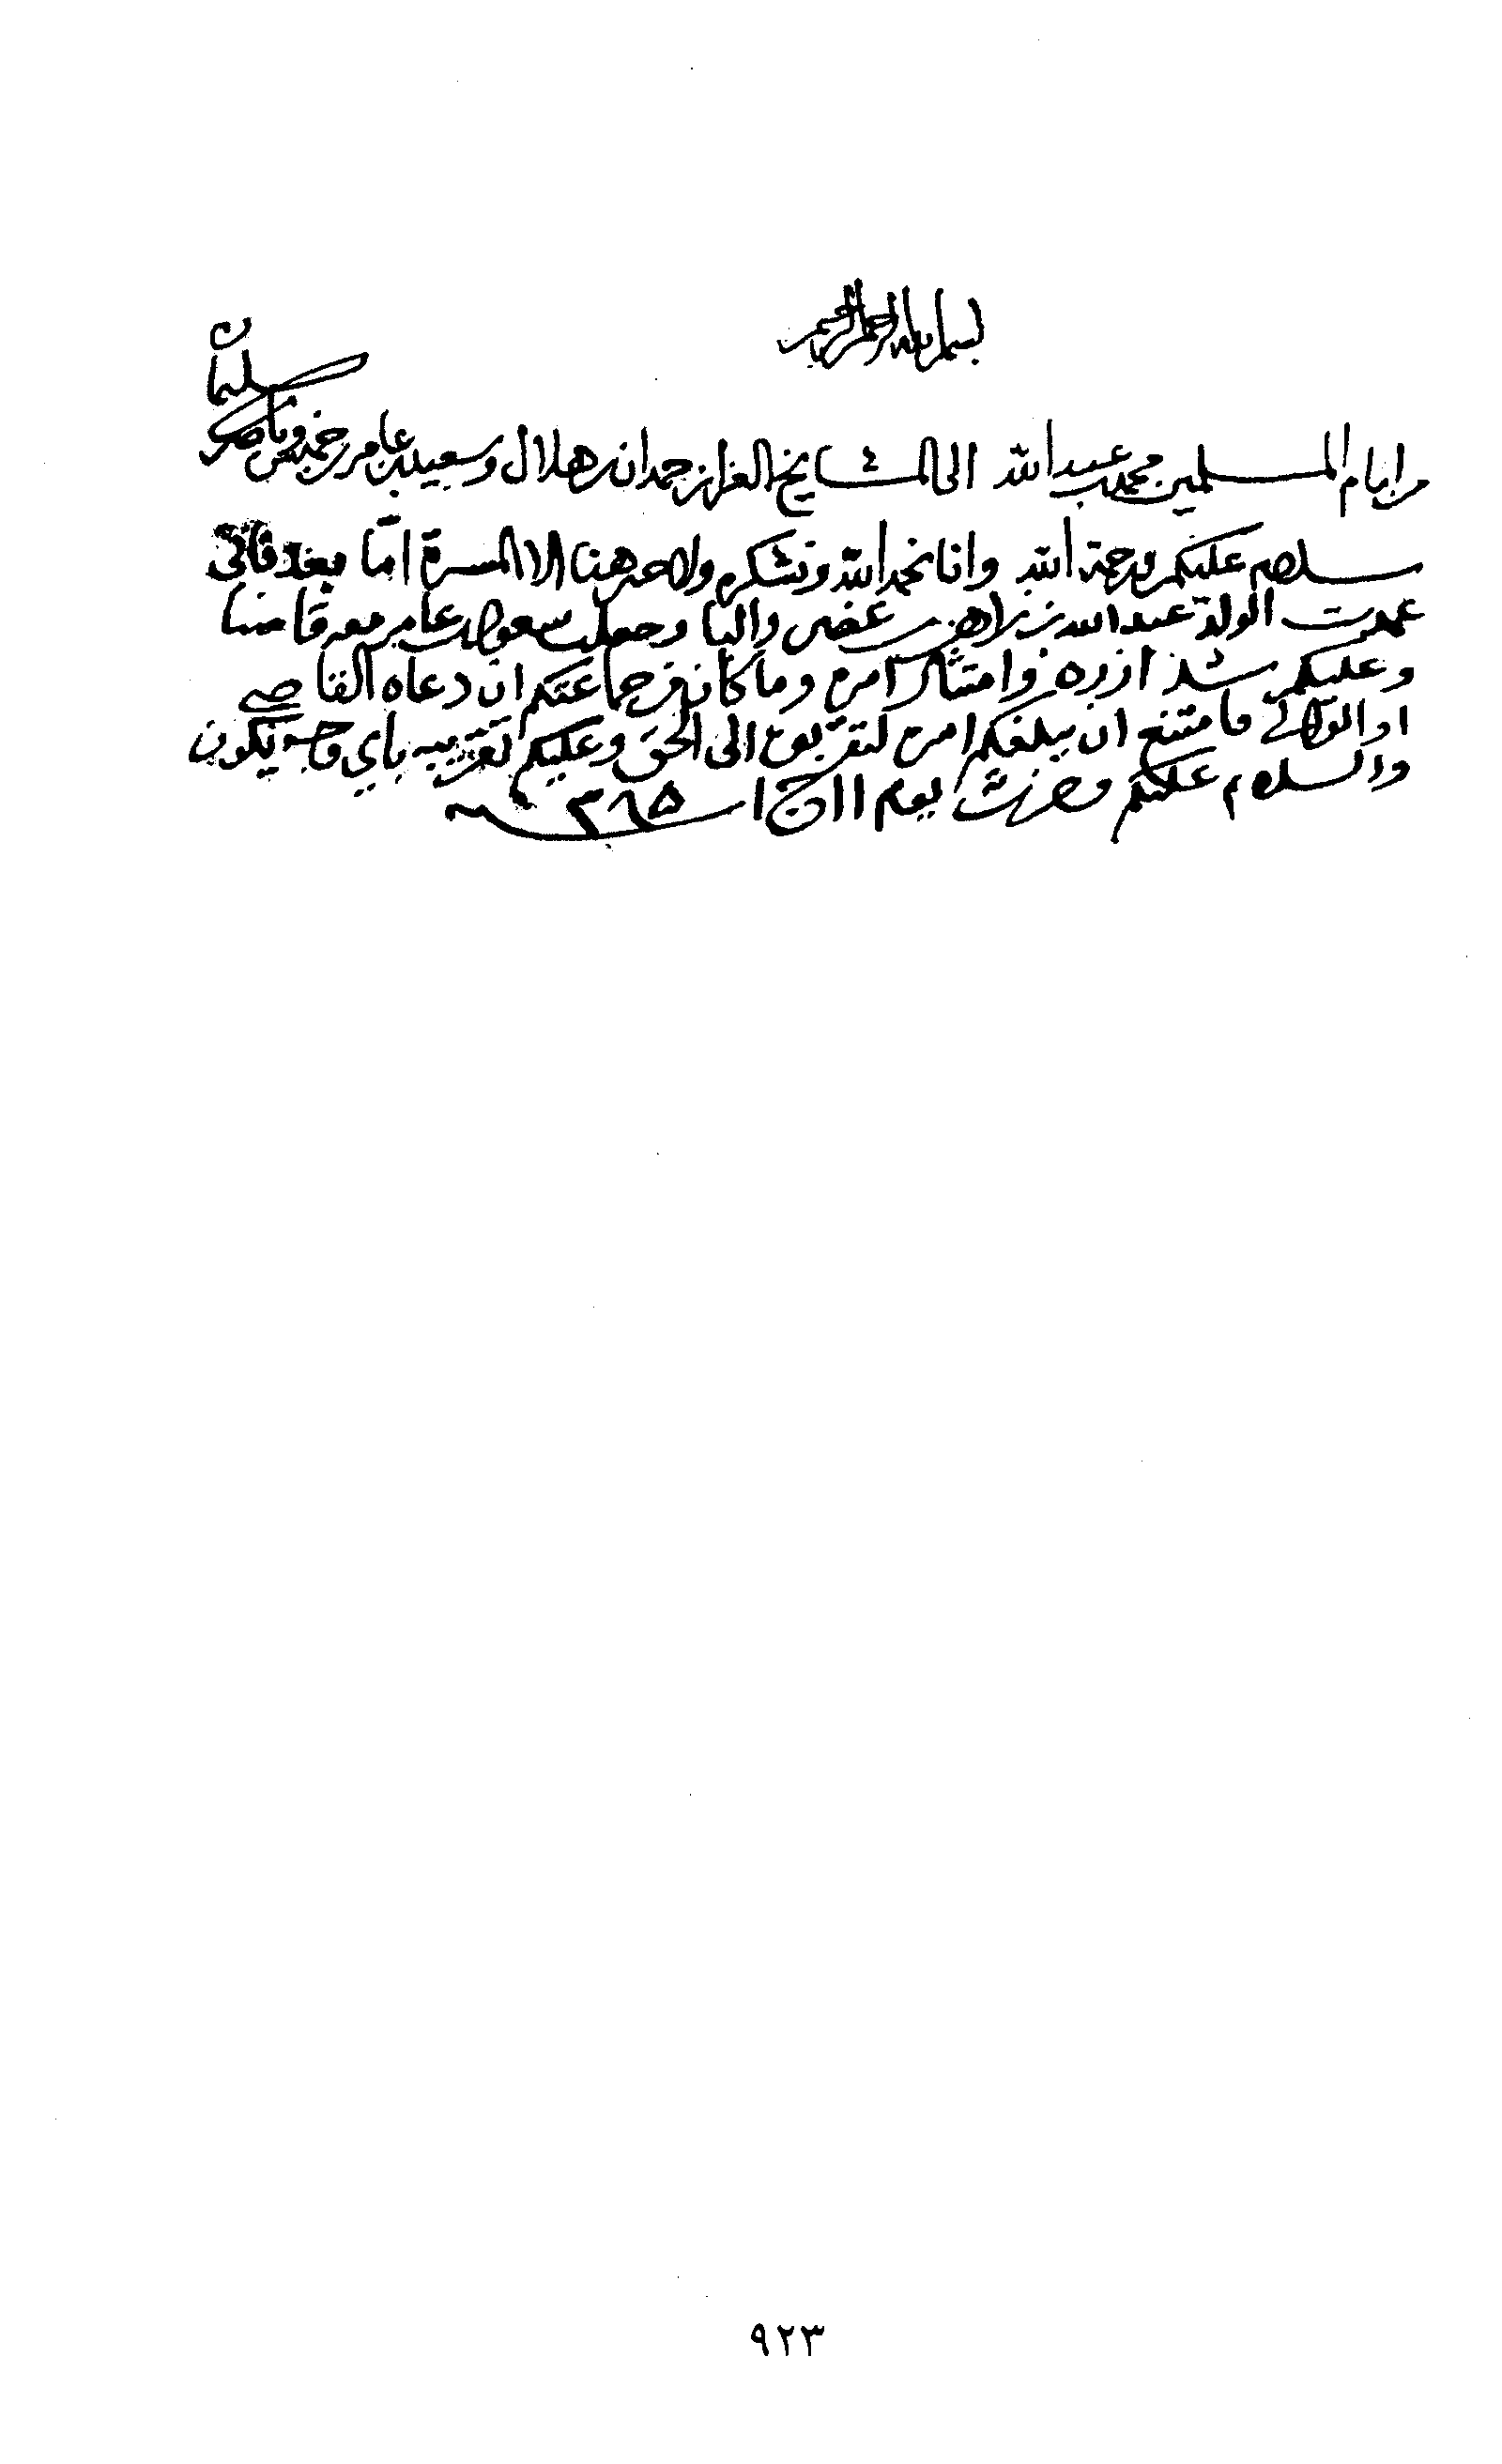 بسم الله الرحمن الرحيم
من إمام المسلمين محمد بن عبد الله الى المشايخ العزاز حمدان بن هلال وسعيد بن عامر بن خميس وناصر بن سليمان
سلام عليكم ورحمة الله وانا نحمد الله ونشكره ولا خبر هنا الا المسرة امّا بعد فاني
عمدت الولد عبد الله بن زاهر بن غصن واليا وجعلت سعود بن عامر معه قاضيا
وعليكم شد ازره وامتثال امره وما كان من جماعتكم ان دعاه القاضي
او الوالي وامتنع ان يبلغكم امره لتقربوه الى الحق وعليكم تقريبه باي وجه يكون
والسلام عليكم يوم ١١ ج ١ سنة ١٣٦٥
٩٢٣